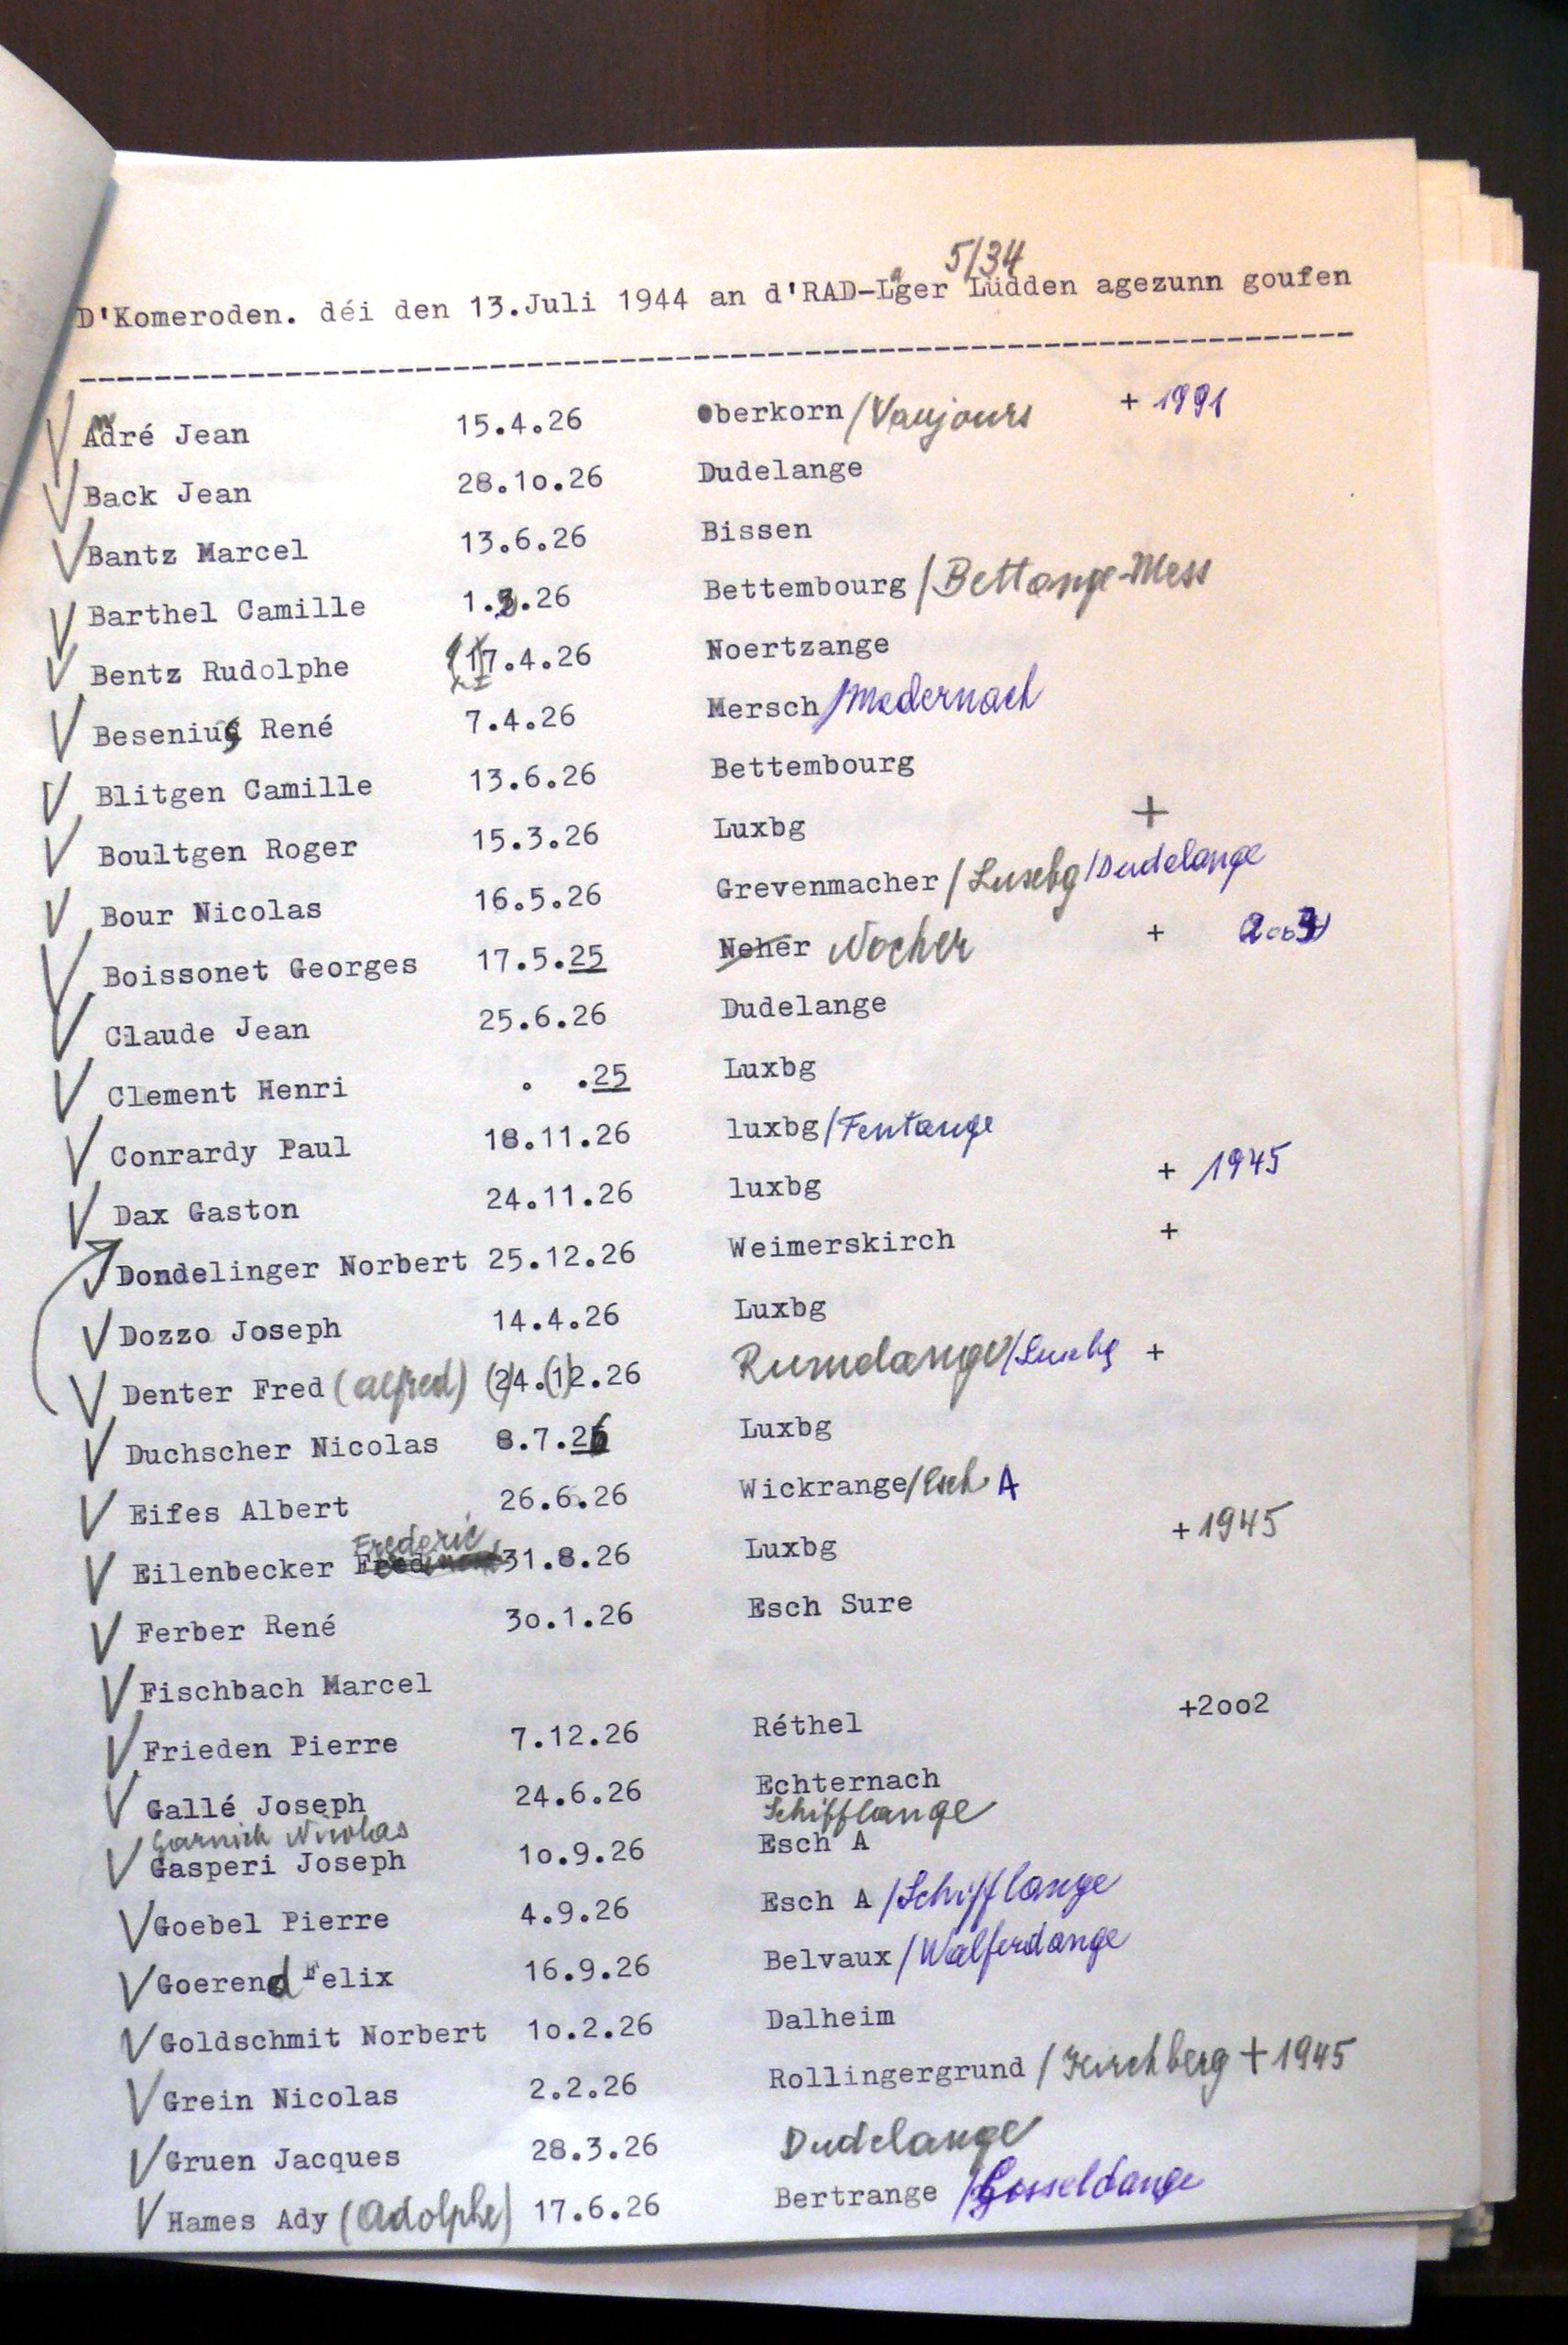 5/34
D'Komeroden. déi den 13.Juli 1944 an d'RAD-Lager Lüdden agezunn goufen
André Jean 15.4.26 Oberkorn/Vaujours + 1991
Back Jean 28.1o.26 Dudelange
Bantz Marcel 13.6.26 Bissen
Barthel Camille 1.3.26 Bettembourg/Bettange-Mess
Bentz Rudolphe 17.4.26 Noertzange
Besenius René 7.4.26 Mersch/Medernach
Blitgen Camille 13.6.26 Bettembourg
Boultgen Roger 15.3.26 Luxbg +
Bour Nicolas 16.5.26 Grevenmacher/Luxbg/Dudelange
Boissonet Georges 17.5.25 Neher Nocher + 2003
Claude Jean 25.6.26 Dudelange
Clement Henri . .25 Luxbg
Conrardy Paul 18.11.26 luxbg/Fentange
Dax Gaston 24.11.26 luxbg + 1945
Dondelinger Norbert 25.12.26 Weimerskirch +
Dozzo Joseph 14.4.26 Luxbg
Denter Fred (Alfred) (2)4.(1)2.26 Rumelange/Luxbg +
Duchscher Nicolas 8.7.26 Luxbg
Eifes Albert 26.6.26 Wickrange/Esch A
Eilenbecker Frederic 31.8.26 Luxbg +1945
Ferber René 3o.1.26 Esch Sure
Fischbach Marcel
Frieden Pierre 7.12.26 Réthel +2oo2
Gallé Joseph 24.6.26 Echternach
Garnich Nicolas Schifflange
Gasperi Joseph 1o.9.26 Esch A
Goebel Pierre 4.9.26 Esch A/Schifflange
Goerend Felix 16.9.26 Belvaux/Walferdange
Goldschmit Norbert 1o.2.26 Dalheim
Grein Nicolas 2.2.26 Rollingergrund/Kirchberg +1945
Gruen Jacques 28.3.26 Dudelange
Hames Ady (Adolphe) 17.6.26 Bertrange/Gosseldange